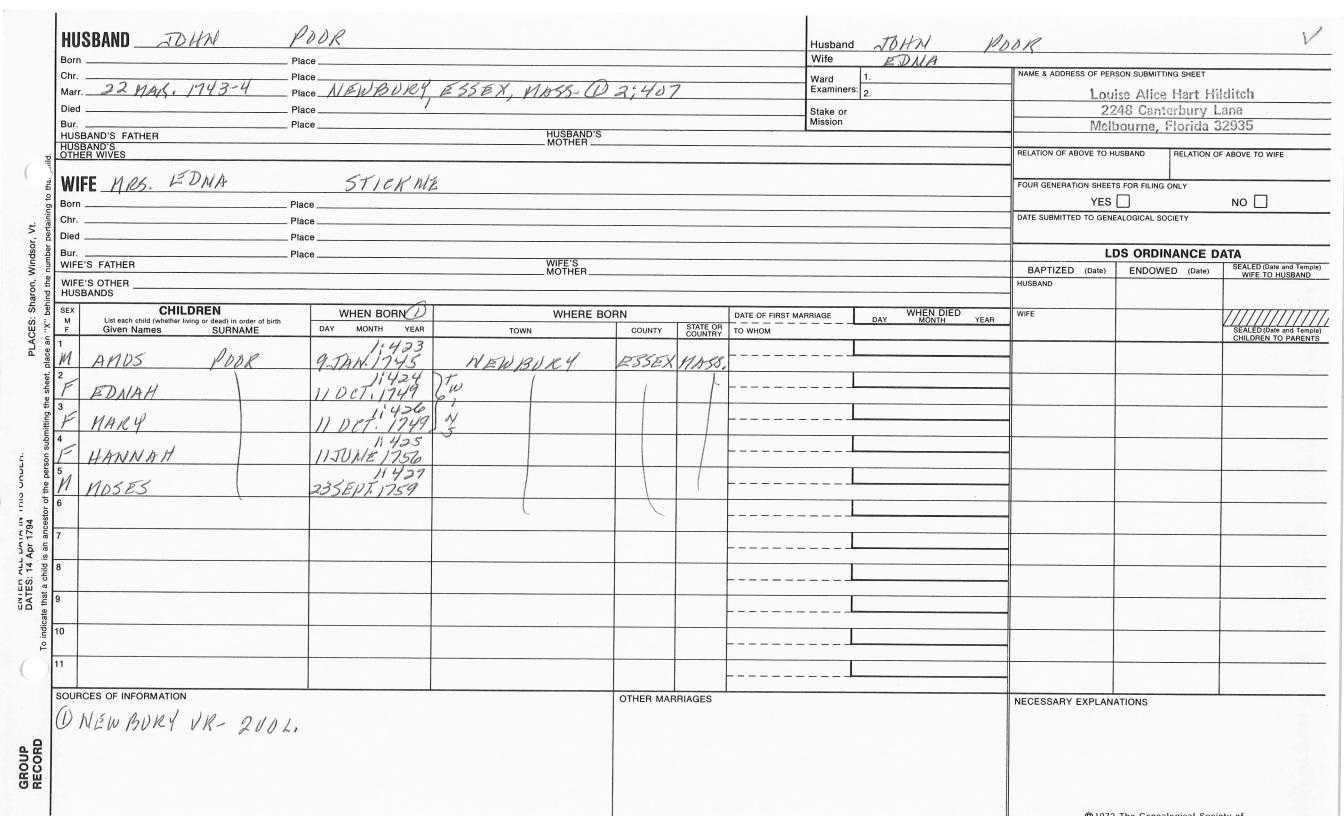 HUSBAND JOHN POOR
Born Place
Chr. Place
Marr. 22 MAR. 1743-4 Place NEWBURY, ESSEX, MASS- ① 2:407
Died Place
Bur. Place
HUSBAND'S FATHER HUSBAND'S MOTHER
HUSBAND'S OTHER WIVES
Husband JOHN POOR
Wife EDNA
Ward Examiners: 1.
2.
Stake or Mission
NAME & ADDRESS OF PERSON SUBMITTING SHEET
Louise Alice Hart Hilditch
2248 Canterbury Lane
Melbourne, Florida 32935
RELATION OF ABOVE TO HUSBAND RELATION OF ABOVE TO WIFE
FOUR GENERATION SHEETS FOR FILING ONLY
YES NO
DATE SUBMITTED TO GENEALOGICAL SOCIETY
WIFE MRS. EDNA STICKNE
Born Place
Chr. Place
Died Place
Bur. Place
WIFE'S FATHER WIFE'S MOTHER
WIFE'S OTHER HUSBANDS
LDS ORDINANCE DATA
BAPTIZED (Date) ENDOWED (Date) SEALED (Date and Temple) WIFE TO HUSBAND
HUSBAND
WIFE
SEALED (Date and Temple) CHILDREN TO PARENTS
SEX M F CHILDREN WHEN BORN ① WHERE BORN DATE OF FIRST MARRIAGE WHEN DIED
List each child (whether living or dead) in order of birth
Given Names SURNAME DAY MONTH YEAR TOWN COUNTY STATE OR COUNTRY TO WHOM DAY MONTH YEAR
1 1:423
M AMOS POOR 9 JAN. 1745 NEWBURY ESSEX MASS.
2 1:424
F EDNAH 11 OCT. 1749 TWINS
3 1:426
F MARY 11 OCT. 1749
4 1:425
F HANNAH 11 JUNE 1756
5 1:427
M MOSES 23 SEPT. 1759
6
7
8
9
10
11
SOURCES OF INFORMATION OTHER MARRIAGES NECESSARY EXPLANATIONS
① NEWBURY VR- 2VOL.
PLACES: Sharon, Windsor, Vt.
DATES: 14 Apr 1794
To indicate that a child is an ancestor of the person submitting the sheet, place an "X" behind the number pertaining to the
GROUP RECORD